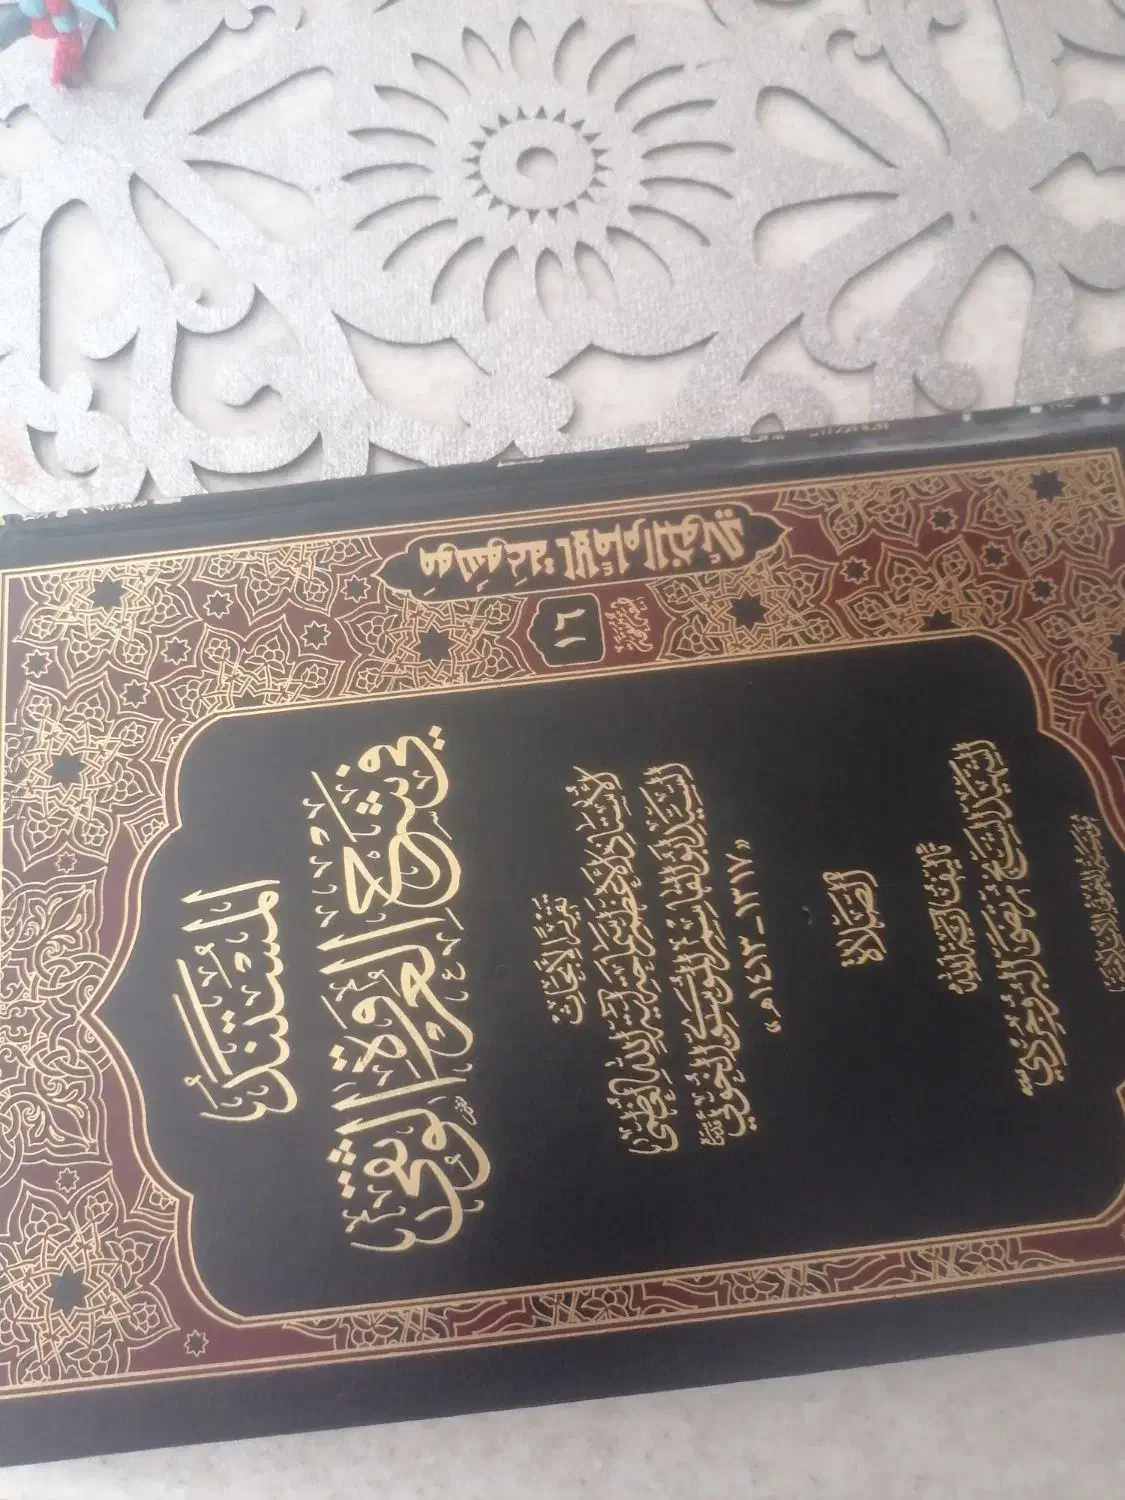 موسوعة الإمام الخوئي
١٦
المستند
في شرح العروة الوثقى
تقرير الأبحاث
الأستاذ الأعظم سماحة آية الله العظمى
السيد أبو القاسم الموسوي الخوئي
«١٣١٧ - ١٤١٣ هـ»
الصلاة
تأليف آية الله
الشهيد الشيخ مرتضى البروجردي